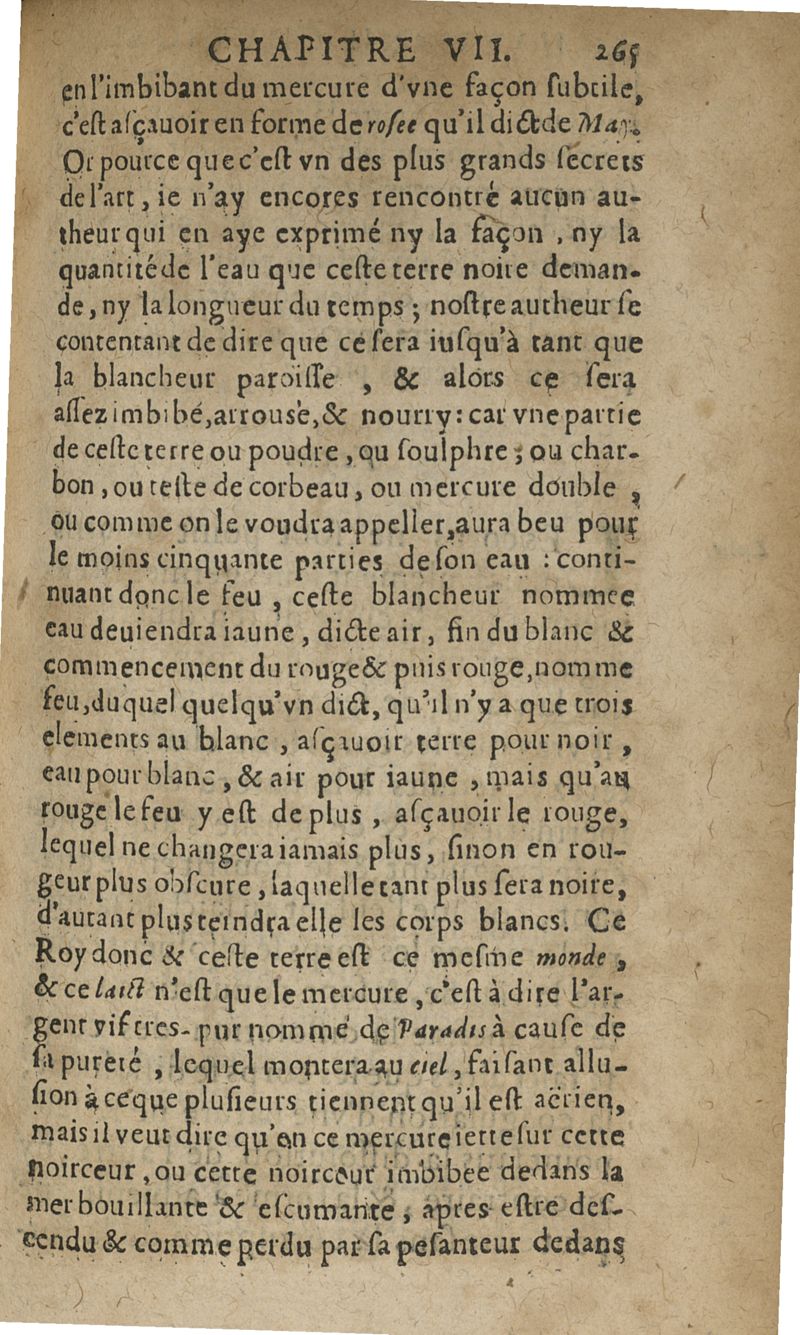 CHAPITRE VII. 265
en l'imbibant du mercure d'vne façon ſubtile,
c'eſt aſçauoir en forme de roſee qu'il dict de May.
Or pource que c'eſt vn des plus grands ſecrets
de l'art, ie n'ay encores rencontré aucun au-
theur qui en aye exprimé ny la façon, ny la
quantité de l'eau que ceſte terre noire deman-
de, ny la longueur du temps; noſtre autheur ſe
contentant de dire que ce ſera iuſqu'à tant que
la blancheur paroiſſe, & alors ce ſera
aſſez imbibé, arrousé, & nourry: car vne partie
de ceſte terre ou poudre, ou ſoulphre; ou char-
bon, ou teſte de corbeau, ou mercure double,
ou comme on le voudra appeller, aura beu pour
le moins cinquante parties de ſon eau: conti-
nuant donc le feu, ceſte blancheur nommee
eau deuiendra iaune, dicte air, fin du blanc &
commencement du rouge & puis rouge, nommé
feu, duquel quelqu'vn dict, qu'il n'y a que trois
elements au blanc, aſçauoir terre pour noir,
eau pour blanc, & air pour iaune, mais qu'au
rouge le feu y eſt de plus, aſçauoir le rouge,
lequel ne changera iamais plus, ſinon en rou-
geur plus obſcure, laquelle tant plus ſera noire,
d'autant plus teindra elle les corps blancs. Ce
Roy donc & ceſte terre eſt ce meſme monde,
& ce laict n'eſt que le mercure, c'eſt à dire l'ar-
gent vif tres-pur nommé de Paradis à cauſe de
ſa pureté, lequel montera au ciel, faiſant allu-
ſion à ce que pluſieurs tiennent qu'il eſt aërien,
mais il veut dire qu'en ce mercure iette ſur cette
noirceur, ou cette noirceur imbibee dedans la
mer bouillante & eſcumante, apres eſtre deſ-
cendu & comme perdu par ſa peſanteur dedans